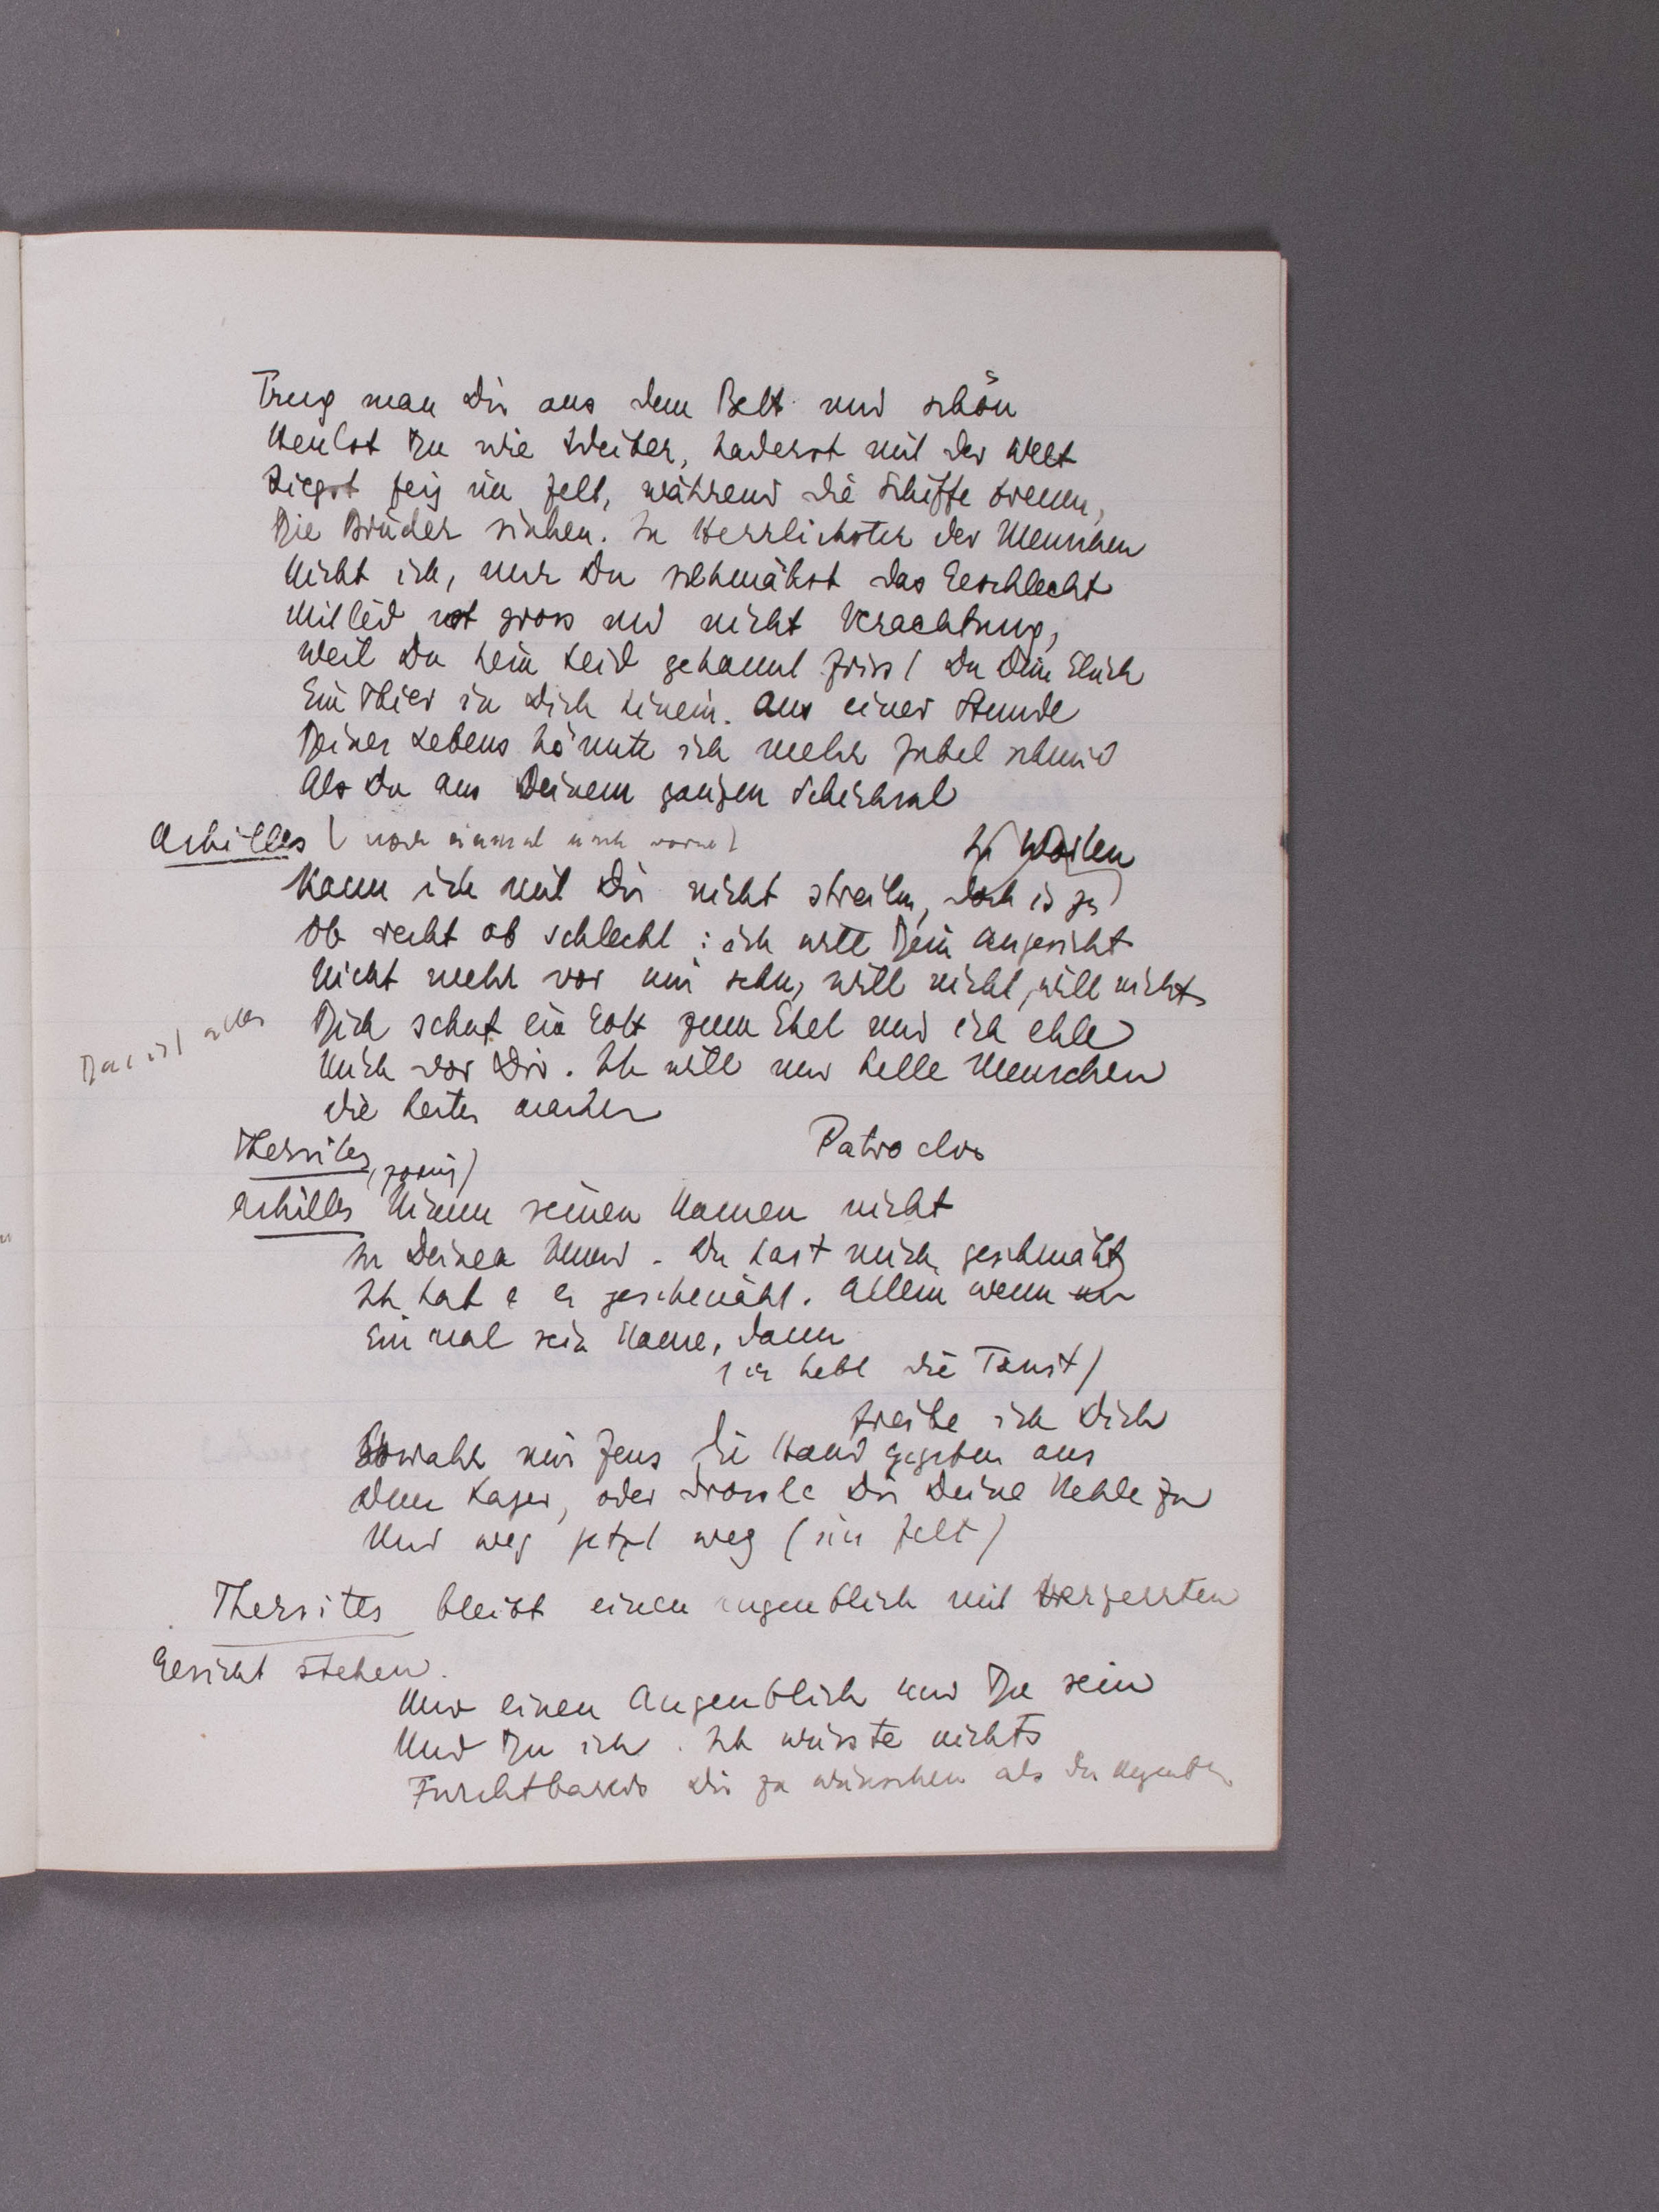 Trug man Dir aus dem Bett und schön
Heulst Du wie Weiber, haderst mit der Welt
Liegst feig im Zelt, während die Schiffe brennen,
Die Brüder sinken. Du Herrlichster der Menschen
Nicht ich, nur Du schmähst das Geschlecht
Mitleid ist gross und nicht Verachtung,
Weil Du kein Leid gekannt frisst Du Dein Glück
Ein Thier in Dich hinein. Aus einer Stunde
Deines Lebens könnte ich mehr Jubel
Als Du aus Deinem ganzen Schicksal
Achilles (noch einmal nach vorne)
In Worten
Kann ich mit Dir nicht streiten, doch
Ob recht ob schlecht: ich will Dein Angesicht
Nicht mehr vor mir sehn, will nicht, will nicht
Das ist alles
Dich schuf ein Gott zum Ekel und ich ekle
Mich vor Dir. Ich will nur helle Menschen
die heiter machen
Thersites
Patroclos
Achilles (zornig)
Nimm seinen Namen nicht
In Deinen Mund. Du hast mich geschmäht
Ich hab es geschmäht. Allein wenn nur
Ein mal sein Name, dann
(er hebt die Faust)
treibe ich Dich
So wahr mir Zeus die Hand gegeben aus
dem Lager, oder drossle Dir Deine Kehle zu
Und weg jetzt weg (ins Zelt)
Thersites bleibt einen Augenblick mit verzerrten
Gesicht stehen.
Nur einen Augenblick nur Du sein
Und Du ich. Ich wüsste nichts
Furchtbarers Dir zu wünschen als den Augenblick